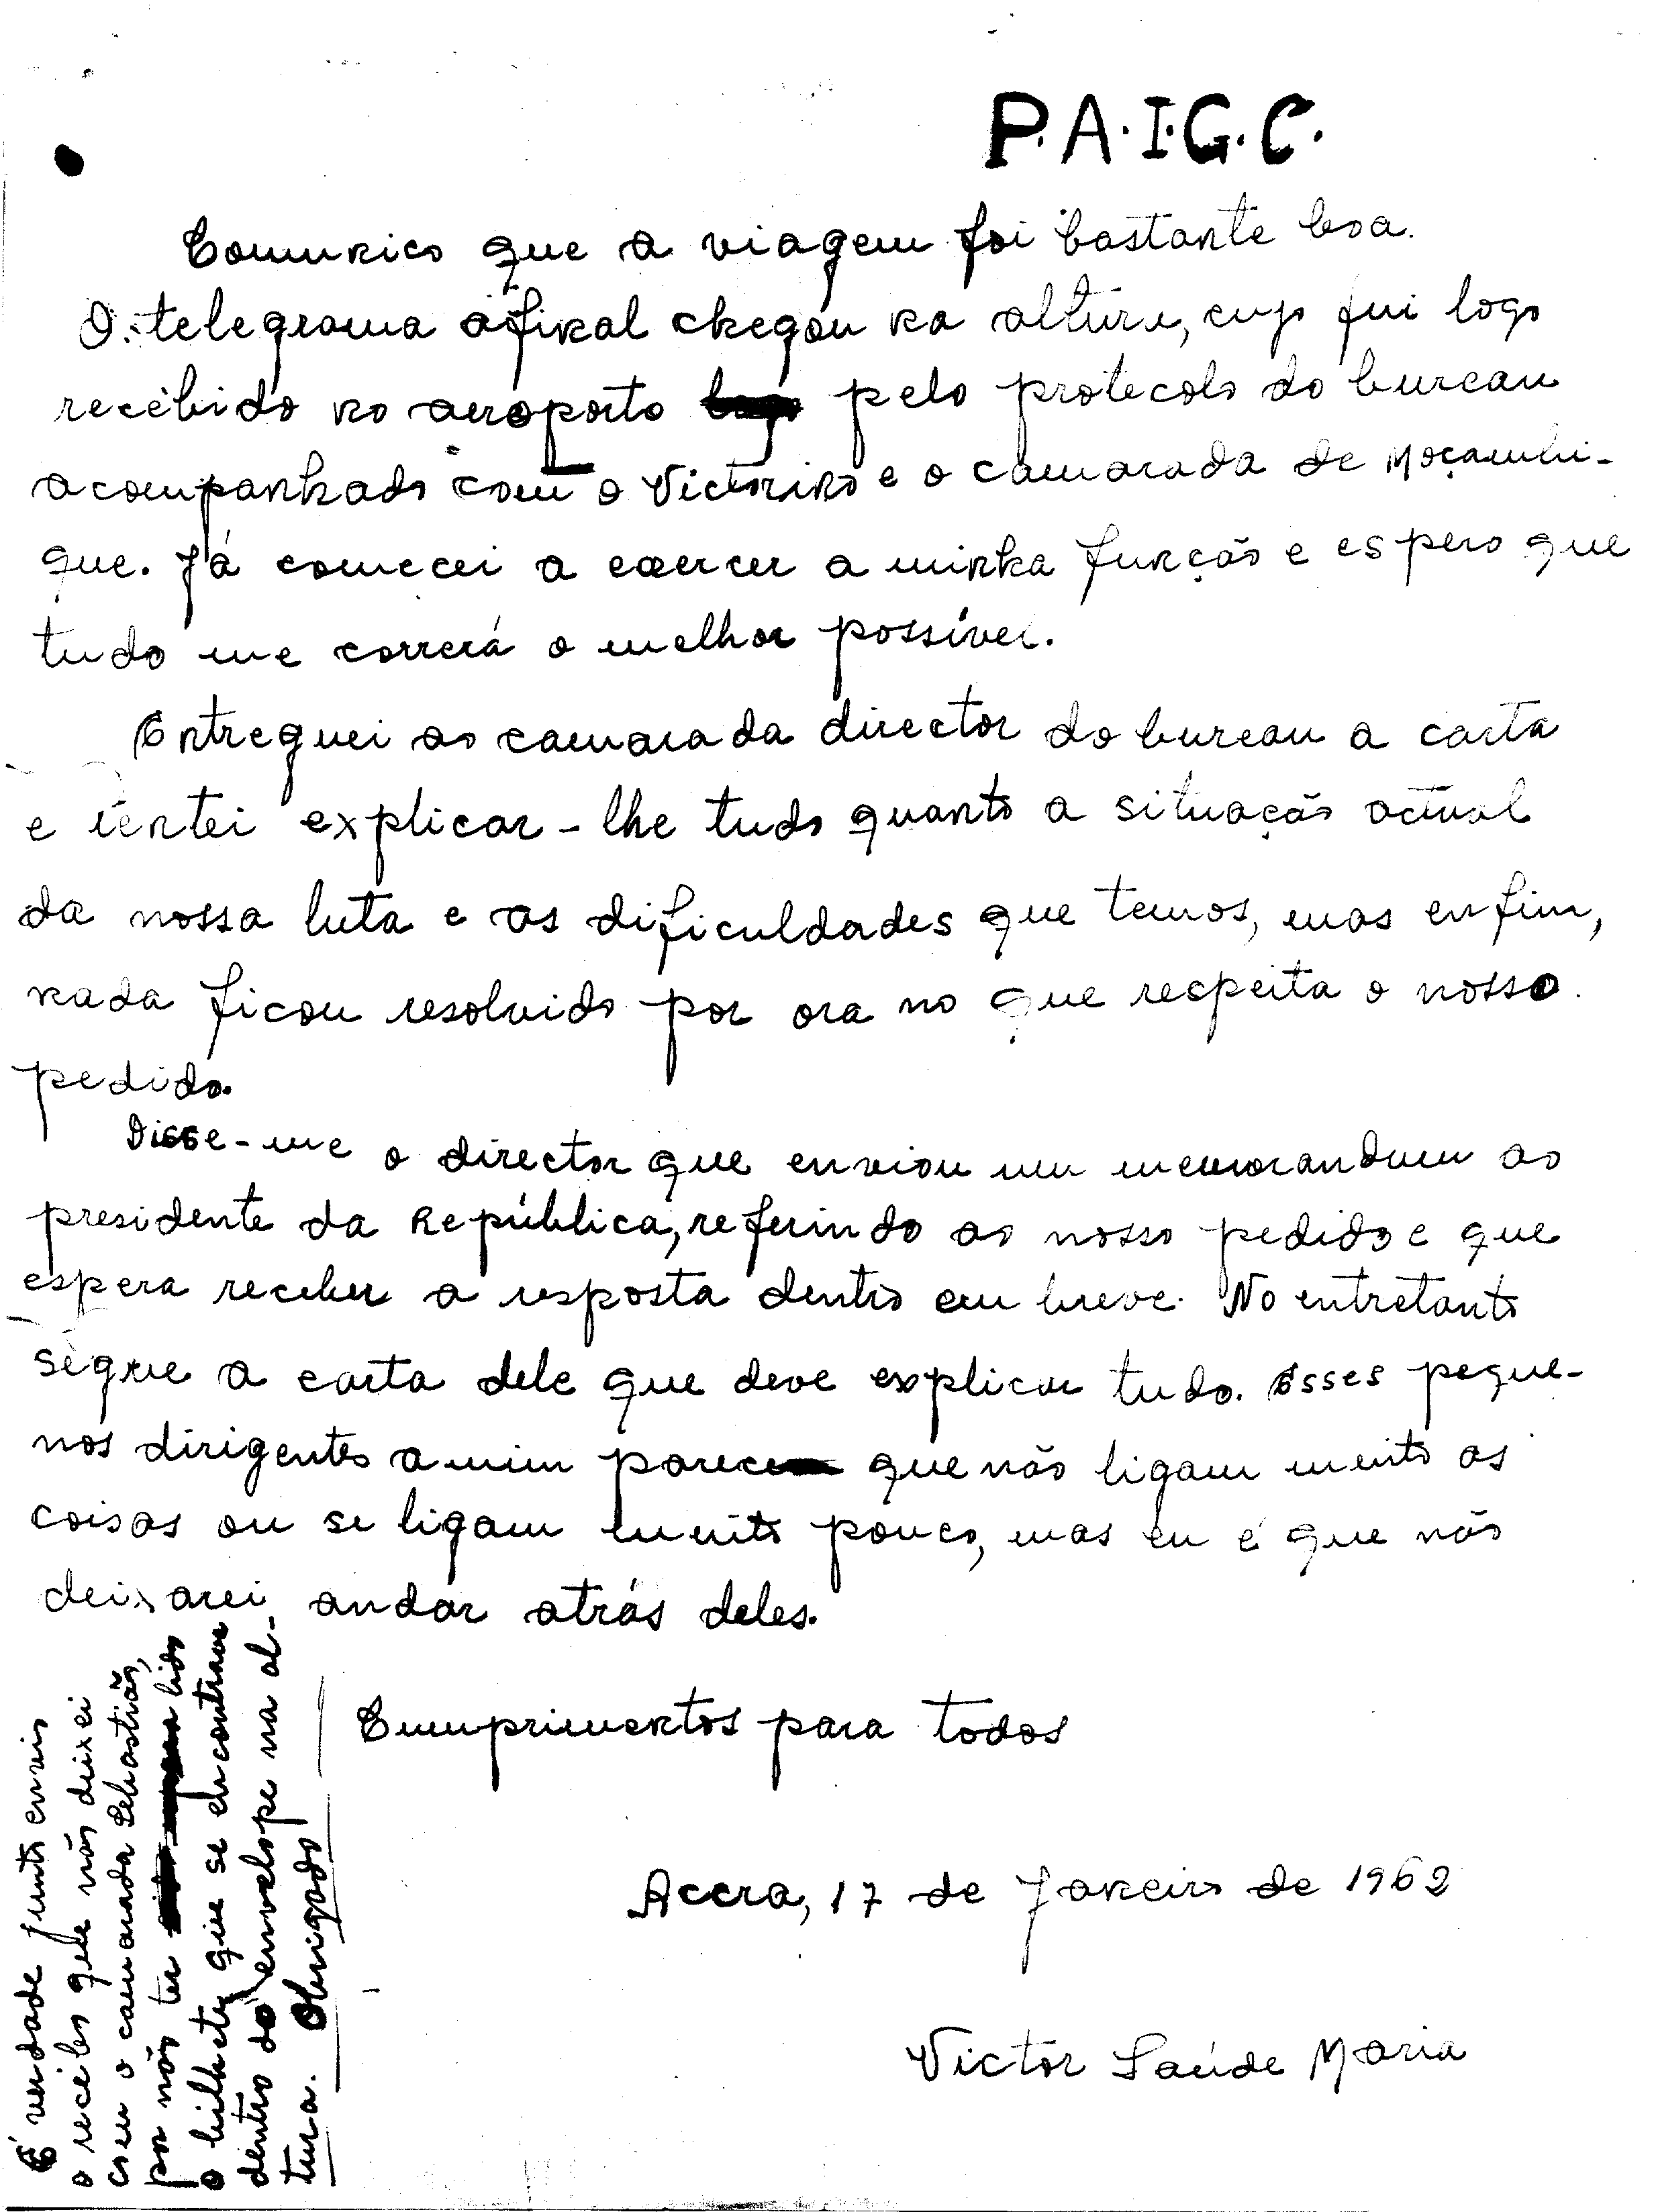 P.A.I.G.C.
Comunico que a viagem foi bastante boa.
O telegrama afinal chegou na altura, cujo fui logo
recebido no aeroporto pelo protecolo do bureau
acompanhado com o Victorino e o camarada de Moçambi-
que. Já comecei a exercer a minha função e espero que
tudo me correrá o melhor possível.
Entreguei ao camarada director do bureau a carta
e tentei explicar-lhe tudo quanto a situação actual
da nossa luta e as dificuldades que temos, mas enfim,
nada ficou resolvido por ora no que respeita o nosso
pedido.
Disse-me o director que enviou um memorandum ao
presidente da República, referindo ao nosso pedido e que
espera receber a resposta dentro em breve. No entretanto
segue a carta dele que deve explicar tudo. Esses peque-
nos dirigentes a mim parece que não ligam muito as
coisas ou se ligam muito pouco, mas eu é que não
deixarei andar atrás deles.
Cumprimentos para todos
Accra, 17 de Janeiro de 1962
Victor Saúde Maria
É verdade junto envio
o recibo que não deixei
com o camarada Sebastião,
por não ter lido
o bilhete que se encontrava
dentro do envelope na al-
tura. Obrigado